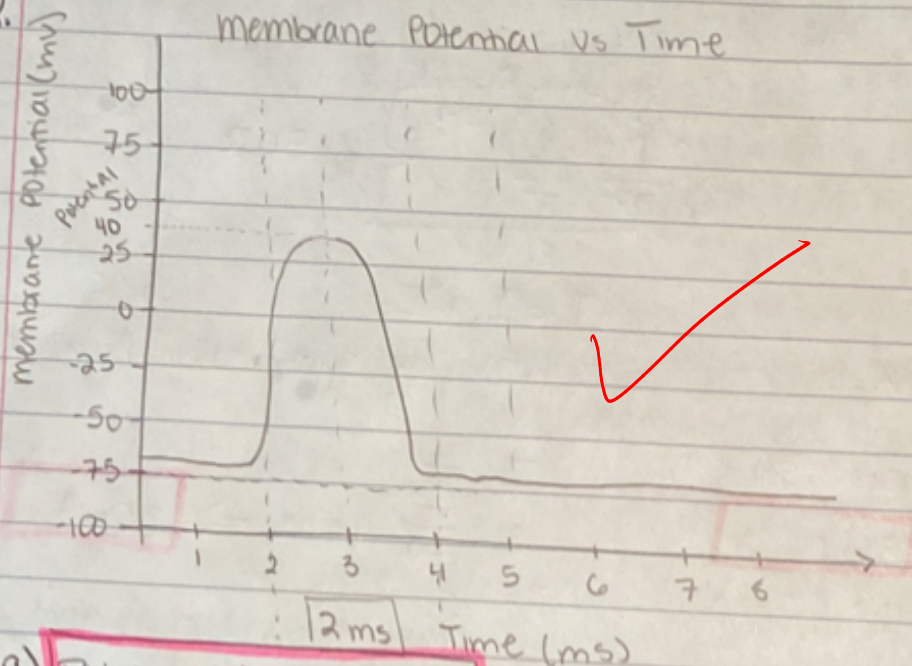 membrane Potential vs Time
membrane Potential (mv)
100
75
Potential
50
40
25
0
-25
-50
-75
-100
1 2 3 4 5 6 7 8
2ms Time (ms)
a)